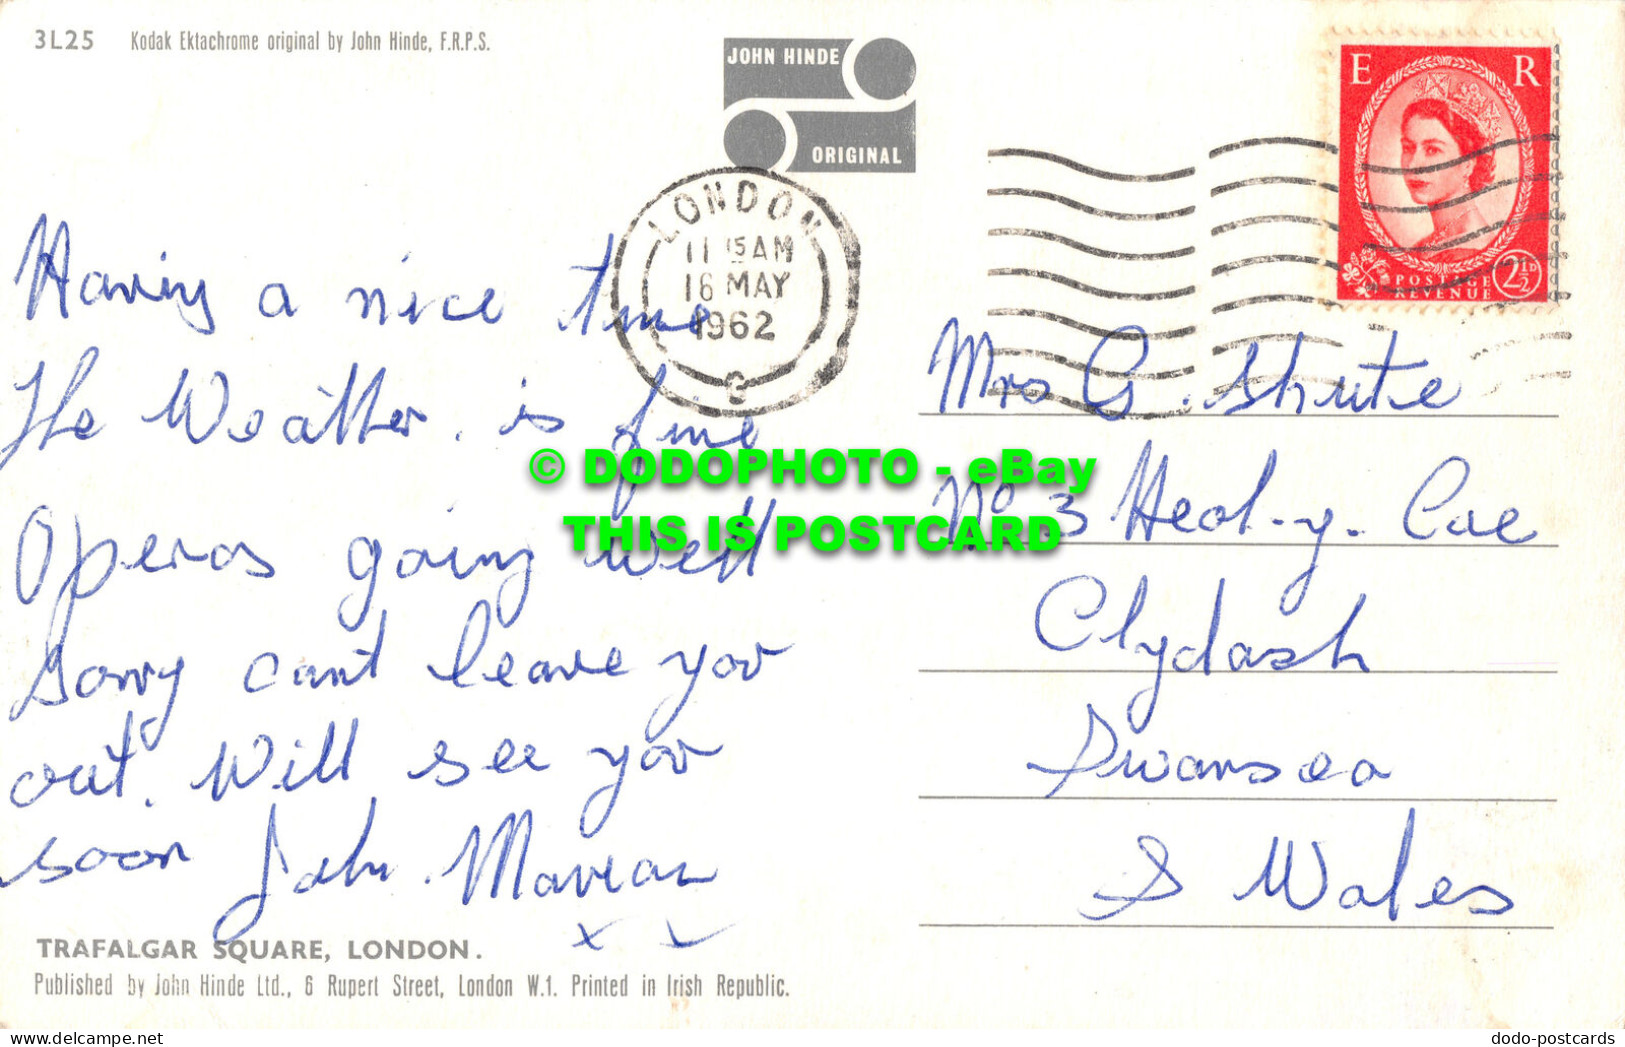 3L25 Kodak Ektachrome original by John Hinde, F.R.P.S.
JOHN HINDE
ORIGINAL
E R
POSTAGE
REVENUE
2½D
LONDON
11 15AM
16 MAY
1962
C
Having a nice time
The Weather. is fine
Operas going well
Sorry cant leave you
out. Will see you
soon John. Marian
x x
Mrs G. Shute
No 3 Heol-y. Cae
Clydash
Swansea
S Wales
© DODOPHOTO - eBay
THIS IS POSTCARD
TRAFALGAR SQUARE, LONDON.
Published by John Hinde Ltd., 6 Rupert Street, London W.1. Printed in Irish Republic.
www.delcampe.net
dodo-postcards